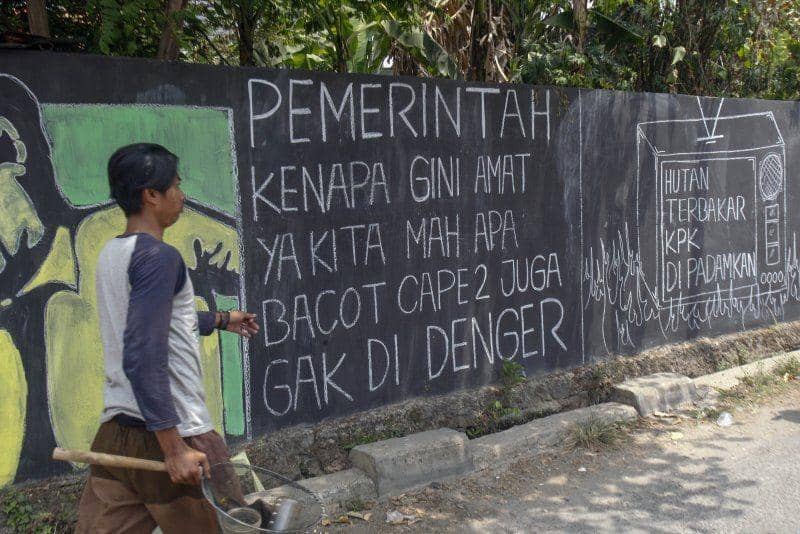 PEMERINTAH
KENAPA GINI AMAT
YA KITA MAH APA
BACOT CAPE2 JUGA
GAK DI DENGER
HUTAN
TERBAKAR
KPK
DI PADAMKAN